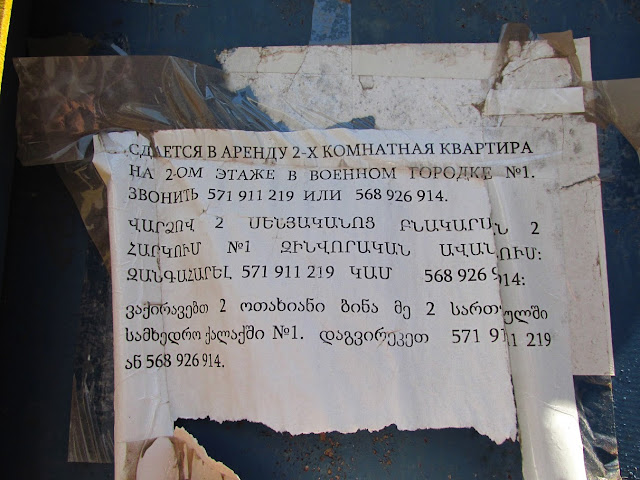 СДАЕТСЯ В АРЕНДУ 2-Х КОМНАТНАЯ КВАРТИРА
НА 2-ОМ ЭТАЖЕ В ВОЕННОМ ГОРОДКЕ №1.
ЗВОНИТЬ 571 911 219 ИЛИ 568 926 914.
ՎԱՐՁՈՎ 2 ՍԵՆՅԱԿԱՆՈՑ ԲՆԱԿԱՐԱՆ 2
ՀԱՐԿՈՒՄ №1 ԶԻՆՎՈՐԱԿԱՆ ԱՎԱՆՈՒՄ:
ԶԱՆԳԱՀԱՐԵԼ 571 911 219 ԿԱՄ 568 926 914:
ვაქირავებთ 2 ოთახიანი ბინა მე 2 სართულში
სამხედრო ქალაქში №1. დაგვირეკეთ 571 911 219
ან 568 926 914.